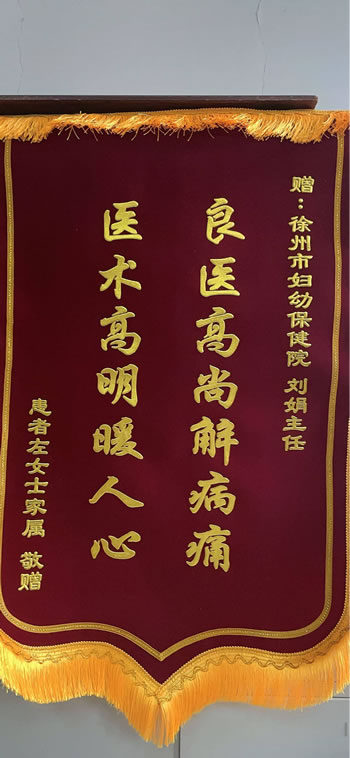 赠：徐州市妇幼保健院 刘娟主任
良医高尚解病痛
医术高明暖人心
患者左女士家属 敬赠